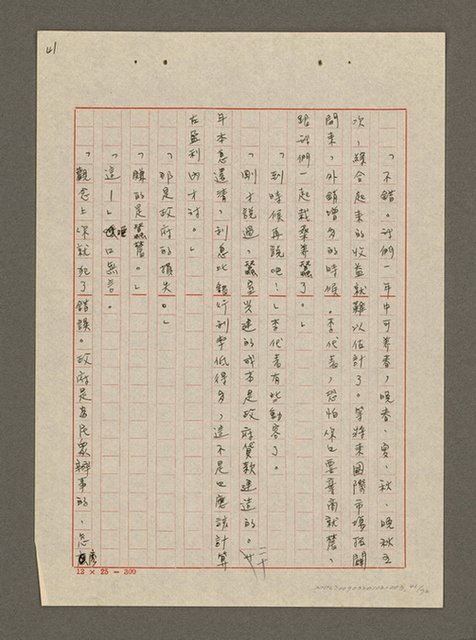 41
「不錯。我們一年中可養春，晚春、夏、秋、晚秋五
次，綜合起來的收益就難以估計了。等將來國際市場推開
開來，外銷增多的時候。李代書，恐怕你也要棄商就農、
跟我們一起栽桑養蠶了。」
「到時候再說吧！」李代書有些動容了。
「剛才說過，蠶室興建的成本是政府貸款建造的。廿
二十
年本息還清，利息比銀行利率低得多，這不是也應該計算
在盈利內才對。」
「那是政府的損失。」
「賺的是蠶農。」
「這ー」啞口無言。
「觀念上你就犯了錯誤。政府是為民眾辦事的，怎麼
12 × 25 = 300